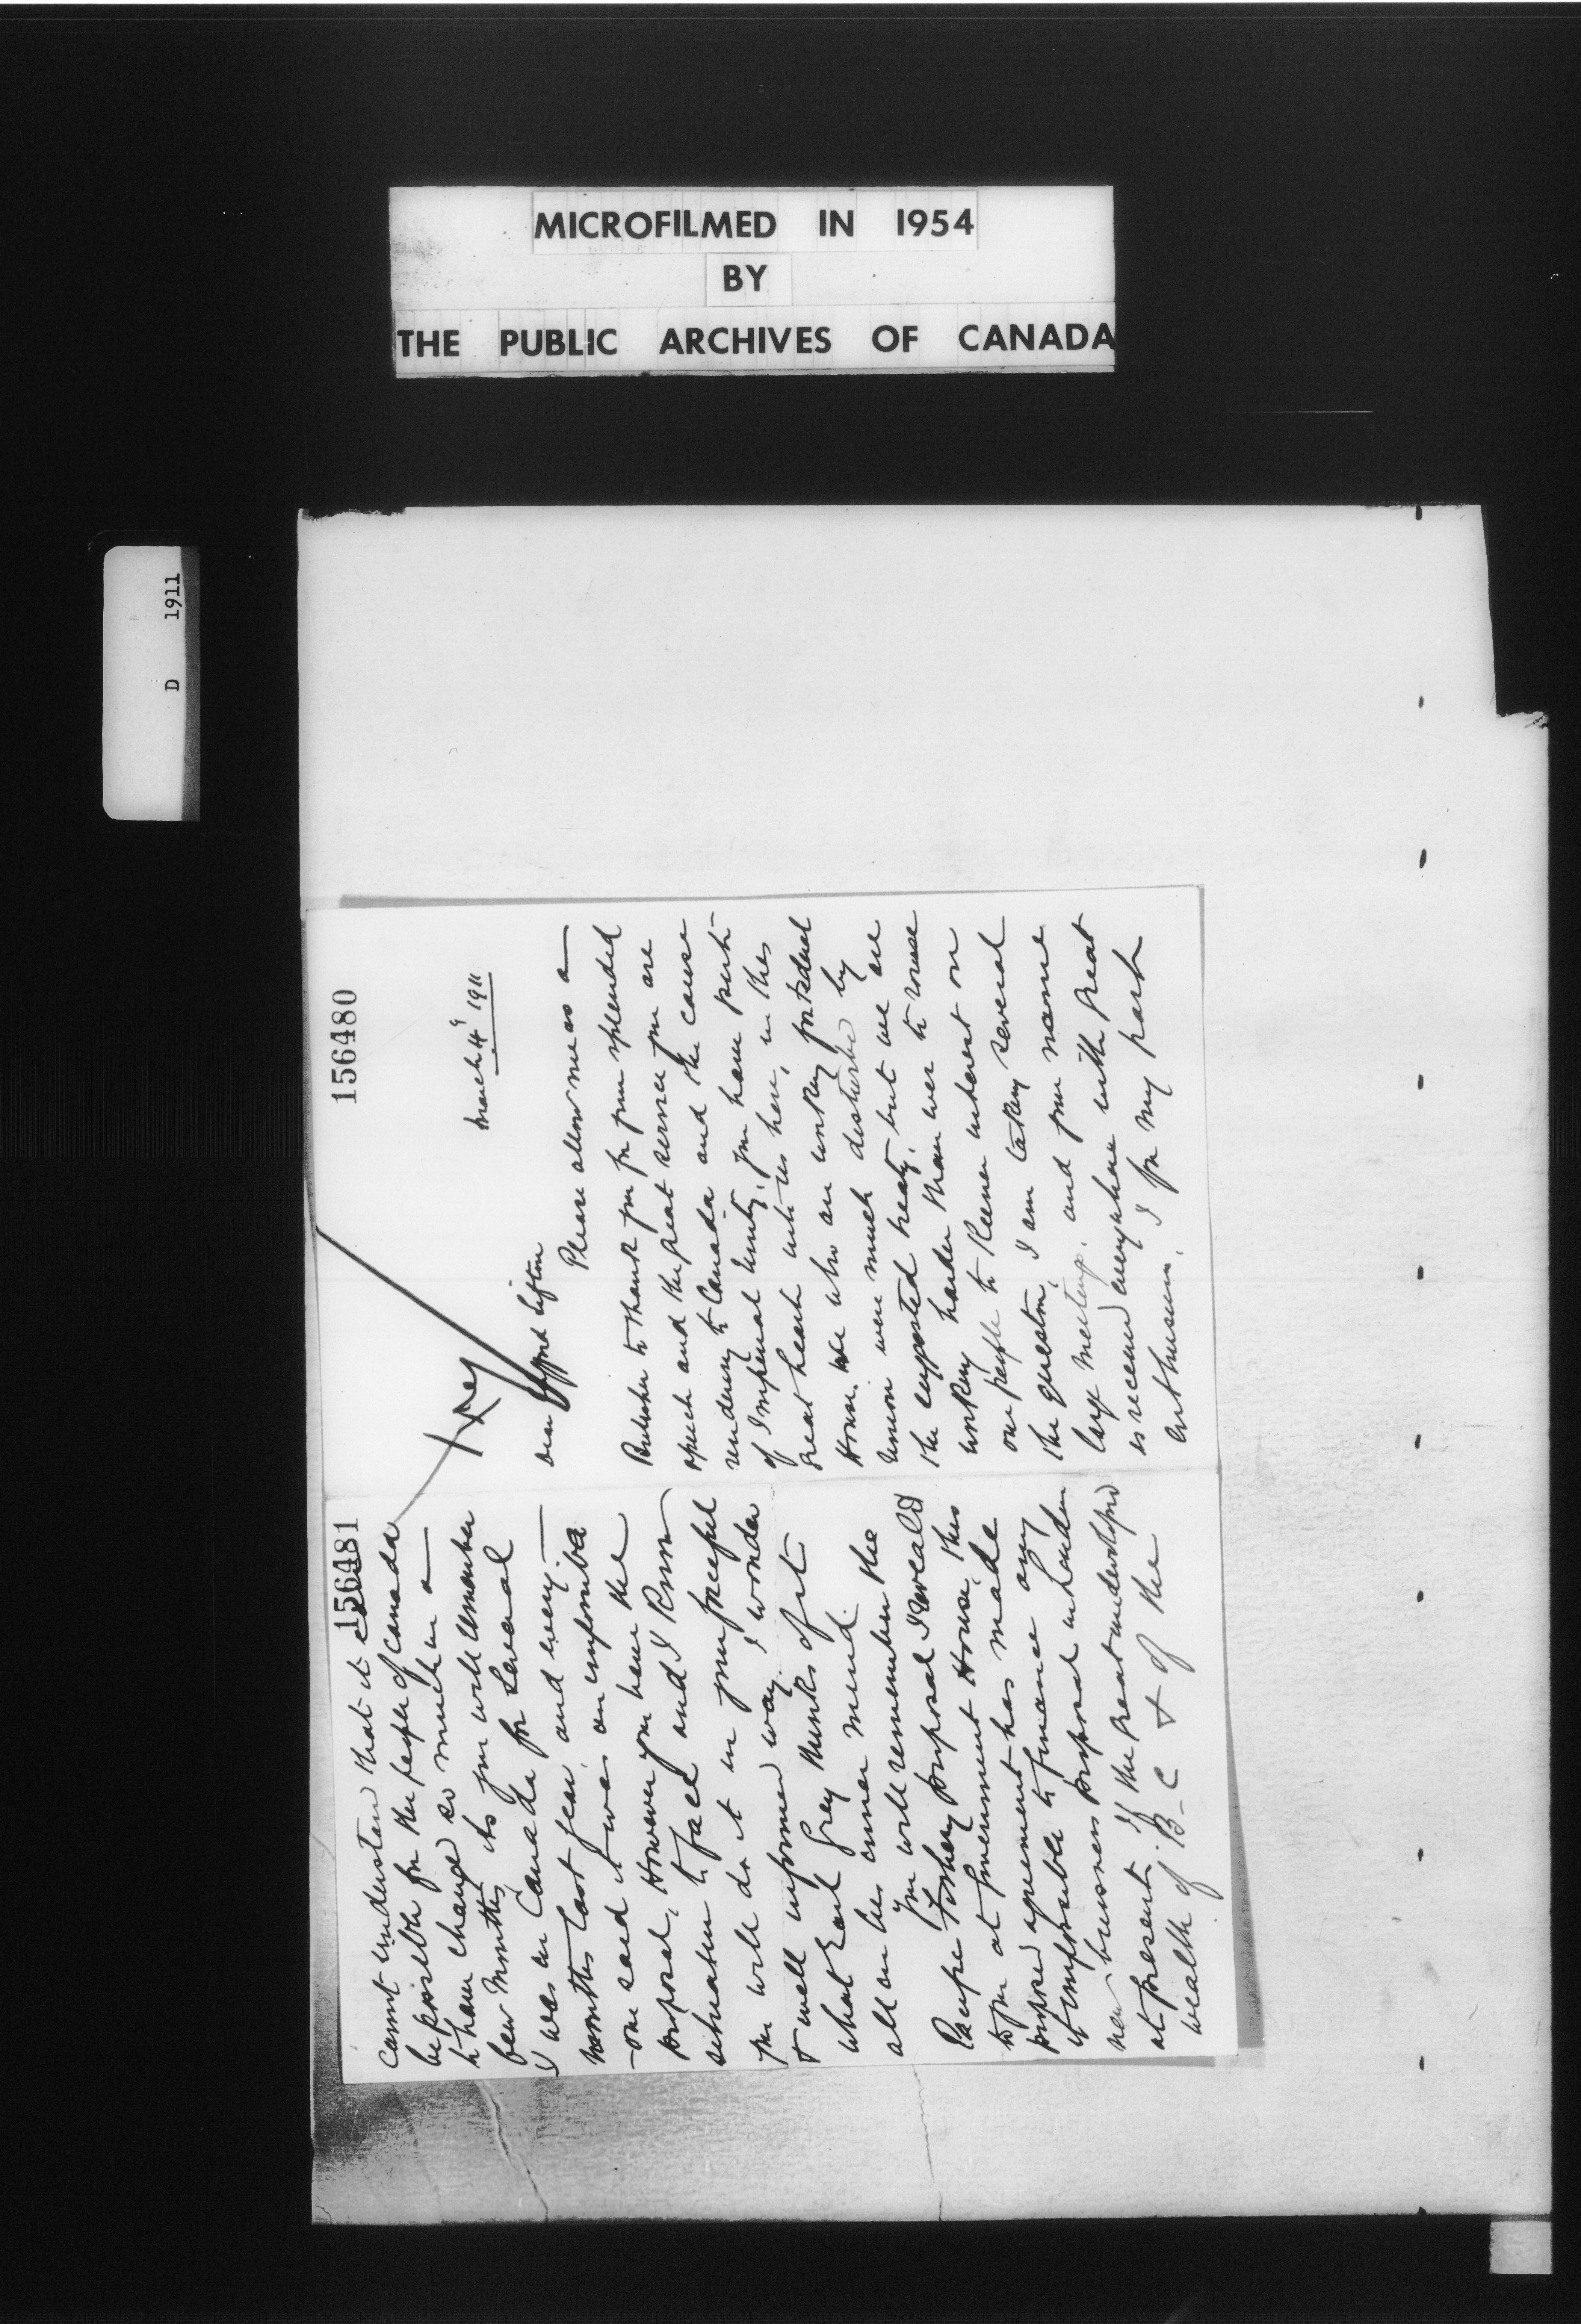 MICROFILMED IN 1954
BY
THE PUBLIC ARCHIVES OF CANADA
D 1911
156480
March 4 1911
Dear Clifford Sifton
Please allow me as a
Britisher to thank you for your splendid
speech and the great service you are
rendering to Canada and the cause
of Imperial Unity. You have put
great heart into us here, in this
House. We who are working for Federal
Union were much disturbed by
the suggested treaty, but we are
working harder than ever to rouse
our people to keener interest on
the question, I am taking several
large meetings, and your name
is received everywhere with great
enthusiasm. I for my part
156481
cannot understand that it
be possible for the people of Canada
to have changed so much in a
few months, its you will remember
I was in Canada for several
months last year, and every
one said it was an impossible
proposal, However you have the
situation to face and I know
you will do it in your forceful
& well informed way. I wonder
what Earl Grey thinks of it
all in his inner mind.
You will remember the
Pacific Fishery proposal I revealed
to you at Government House, this
proposed agreement has made
it impossible to finance any
new business proposal in London
at present. If the great undeveloped
wealth of B-C & of the